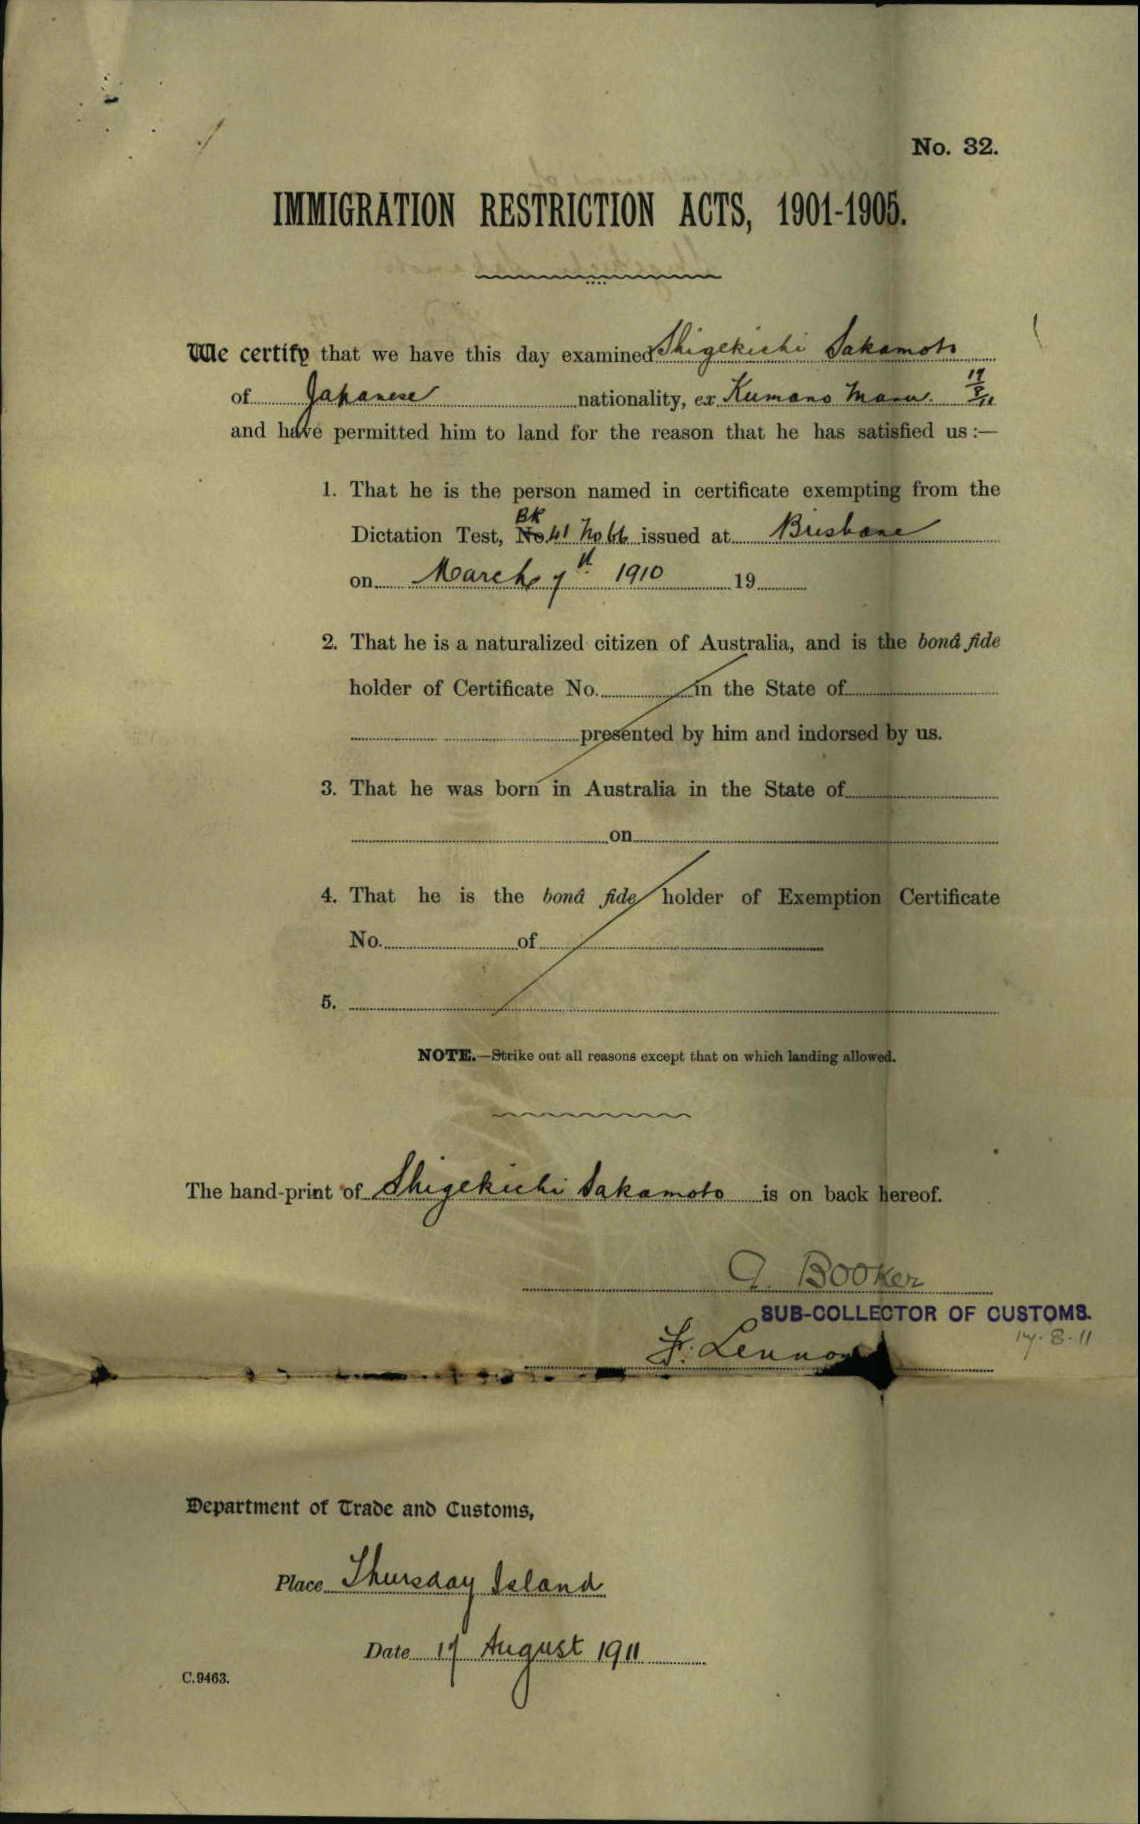 No. 32.
IMMIGRATION RESTRICTION ACTS, 1901-1905.
We certify that we have this day examined Shigekichi Sakamoto
of Japanese nationality, ex Kumano Maru. 17/8/11
and have permitted him to land for the reason that he has satisfied us:—
1. That he is the person named in certificate exempting from the
BK
Dictation Test, No. 41 No 66 issued at Brisbane
on March 7th 1910 19
2. That he is a naturalized citizen of Australia, and is the bonâ fide
holder of Certificate No. in the State of
presented by him and indorsed by us.
3. That he was born in Australia in the State of
on
4. That he is the bonâ fide holder of Exemption Certificate
No. of
5.
NOTE.—Strike out all reasons except that on which landing allowed.
The hand-print of Shigekichi Sakamoto is on back hereof.
G. Booker
SUB-COLLECTOR OF CUSTOMS.
17.8.11
F. Lennox
Department of Trade and Customs,
Place Thursday Island
Date 17 August 1911
C.9463.